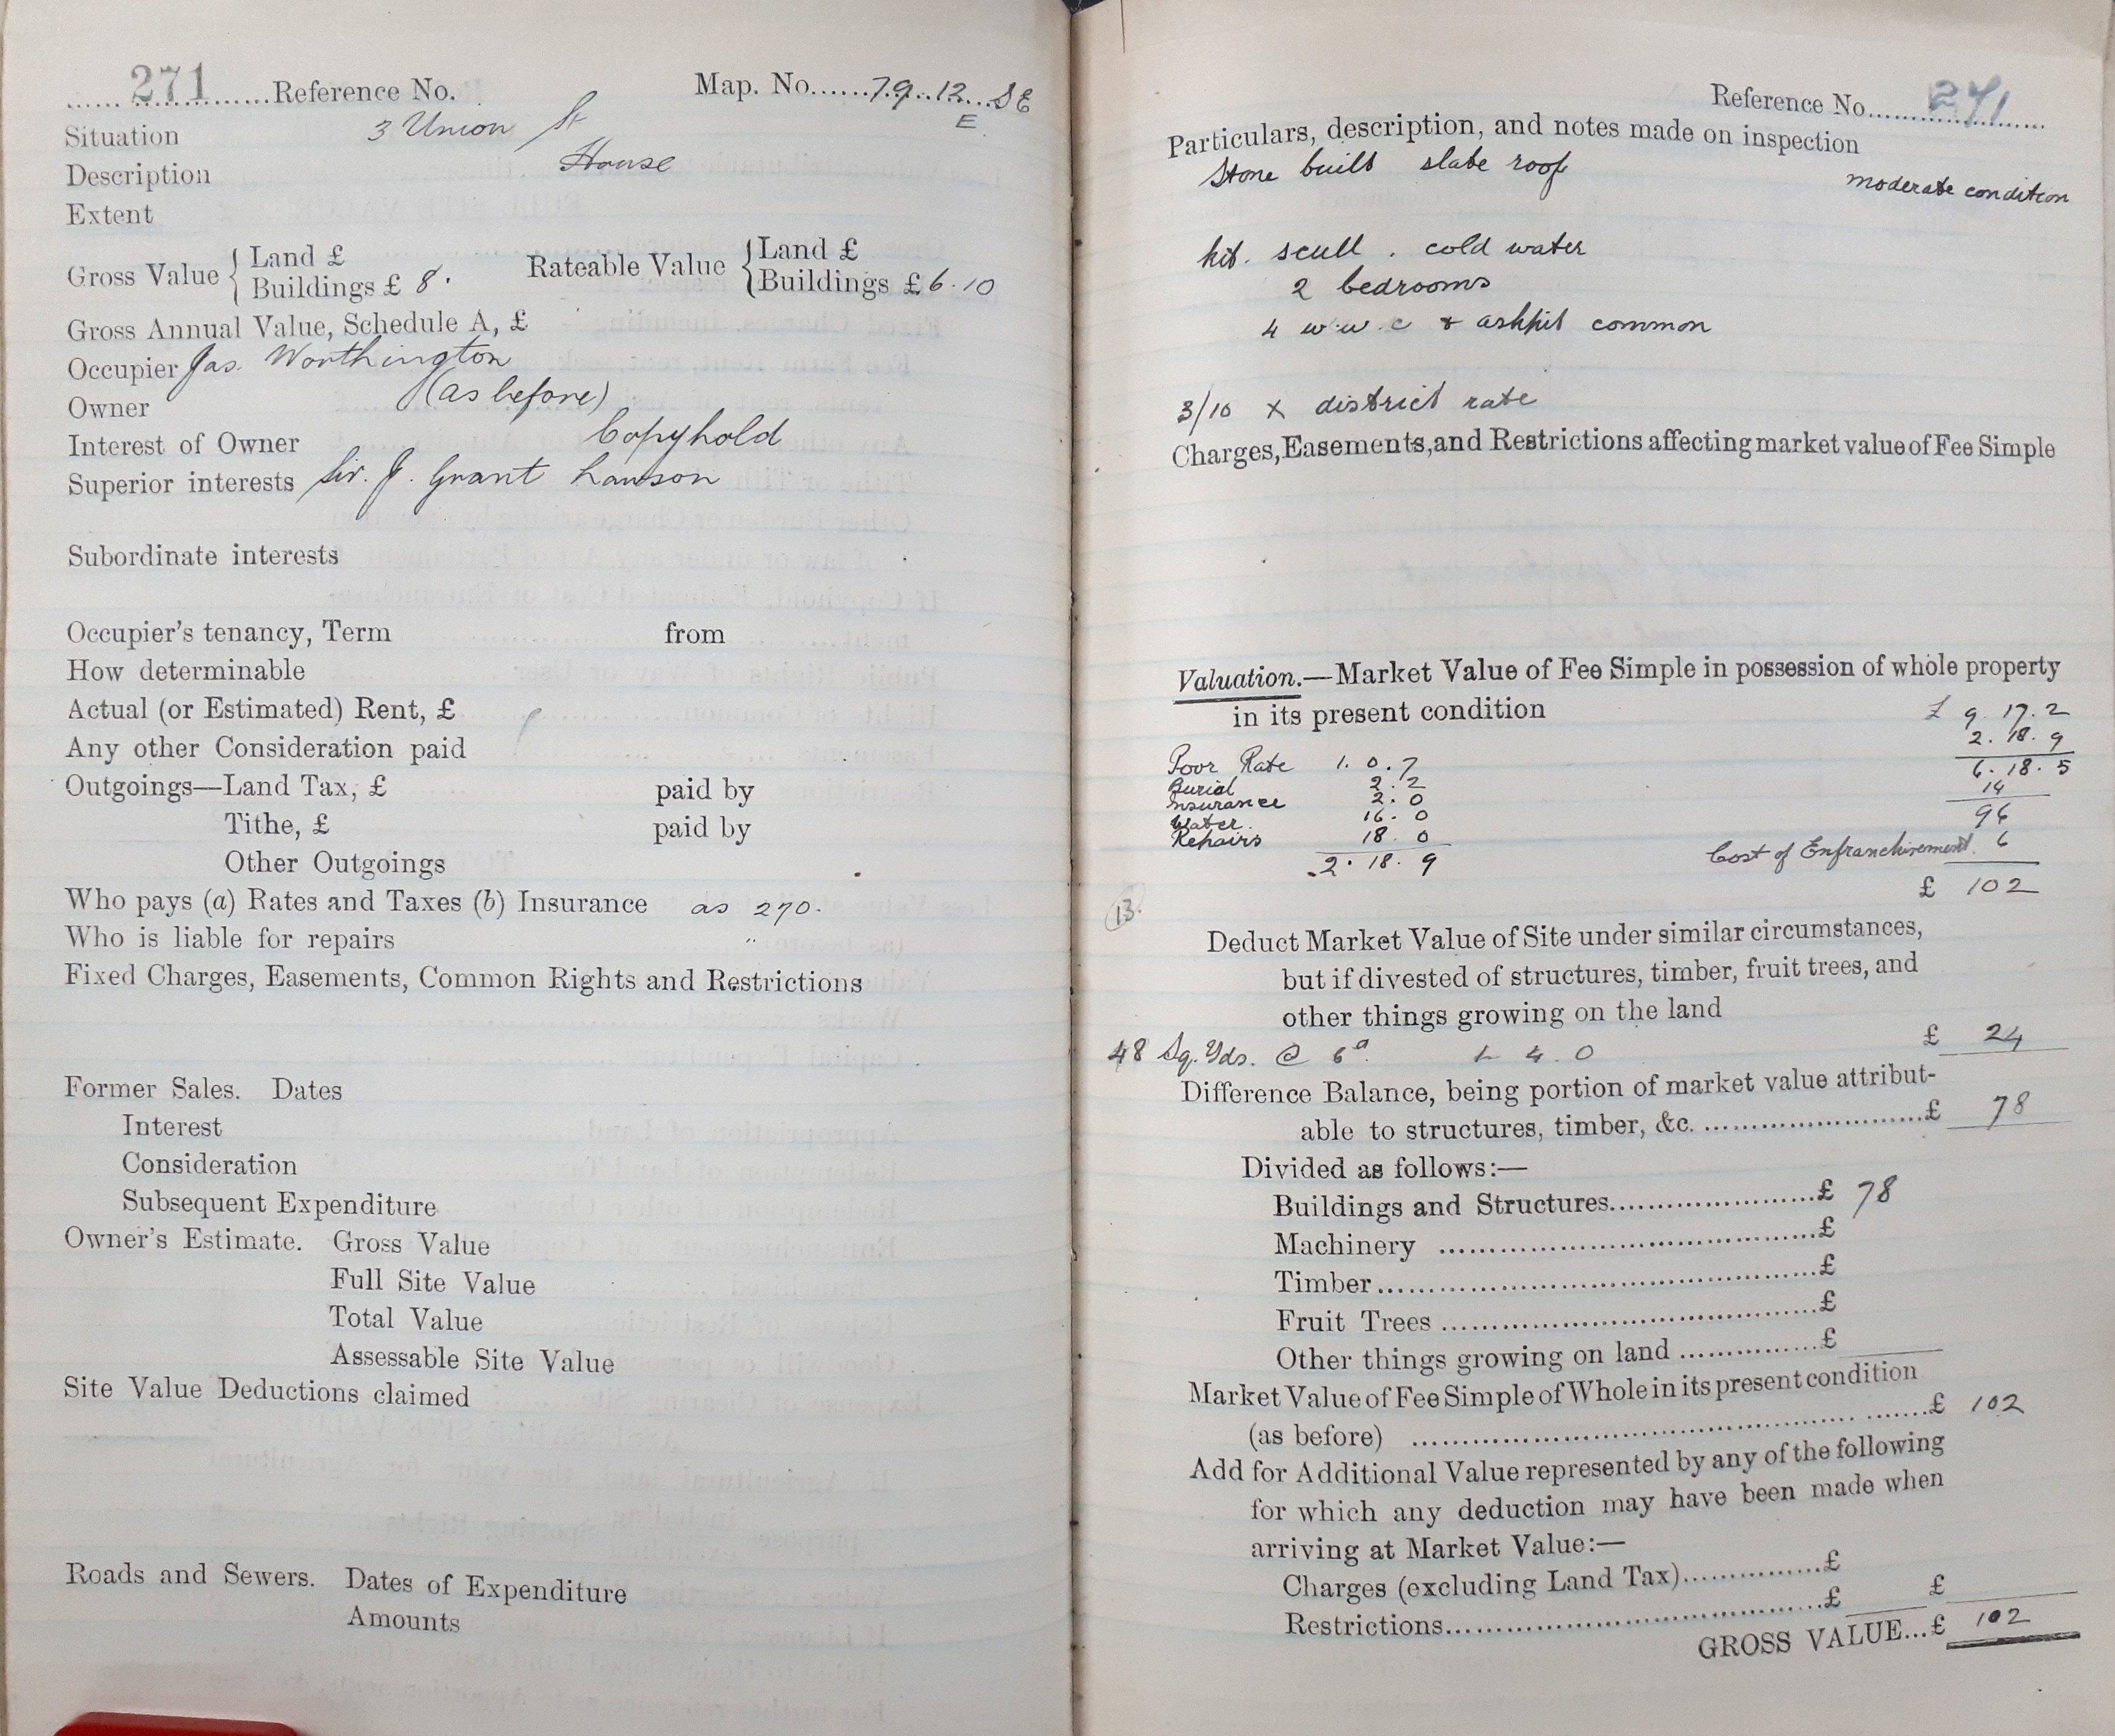 271 Reference No. Map. No. 79.12 SE
E
Situation 3 Union St
Description House
Extent
Gross Value { Land £
Buildings £ 8. Rateable Value { Land £
Buildings £ 6.10
Gross Annual Value, Schedule A, £
Occupier Jas. Worthington
Owner (as before)
Interest of Owner Copyhold
Superior interests Sir. J. Grant Lawson
Subordinate interests
Occupier's tenancy, Term from
How determinable
Actual (or Estimated) Rent, £
Any other Consideration paid
Outgoings—Land Tax, £ paid by
Tithe, £ paid by
Other Outgoings
Who pays (a) Rates and Taxes (b) Insurance as 270.
Who is liable for repairs "
Fixed Charges, Easements, Common Rights and Restrictions
Former Sales. Dates
Interest
Consideration
Subsequent Expenditure
Owner's Estimate. Gross Value
Full Site Value
Total Value
Assessable Site Value
Site Value Deductions claimed
Roads and Sewers. Dates of Expenditure
Amounts
Reference No. 271
Particulars, description, and notes made on inspection
Stone built slate roof moderate condition
kit. scull. cold water
2 bedrooms
4 w.w.c & ashpit common
3/10 x district rate
Charges, Easements, and Restrictions affecting market value of Fee Simple
Valuation.—Market Value of Fee Simple in possession of whole property
in its present condition £ 9.17.2
2.18.9
Poor Rate 1.0.7 6.18.5
Burial 2.2 14
Insurance 2.0 96
Water 16.0
Repairs 18 0 Cost of Enfranchisement. 6
2.18.9 £ 102
13.
Deduct Market Value of Site under similar circumstances,
but if divested of structures, timber, fruit trees, and
other things growing on the land £ 24
48 Sq. Yds. @ 6d. £ 4.0
Difference Balance, being portion of market value attribut-
able to structures, timber, &c. £ 78
Divided as follows:—
Buildings and Structures £ 78
Machinery £
Timber £
Fruit Trees £
Other things growing on land £
Market Value of Fee Simple of Whole in its present condition
(as before) £ 102
Add for Additional Value represented by any of the following
for which any deduction may have been made when
arriving at Market Value:—
Charges (excluding Land Tax) £
Restrictions £ £
GROSS VALUE...£ 102